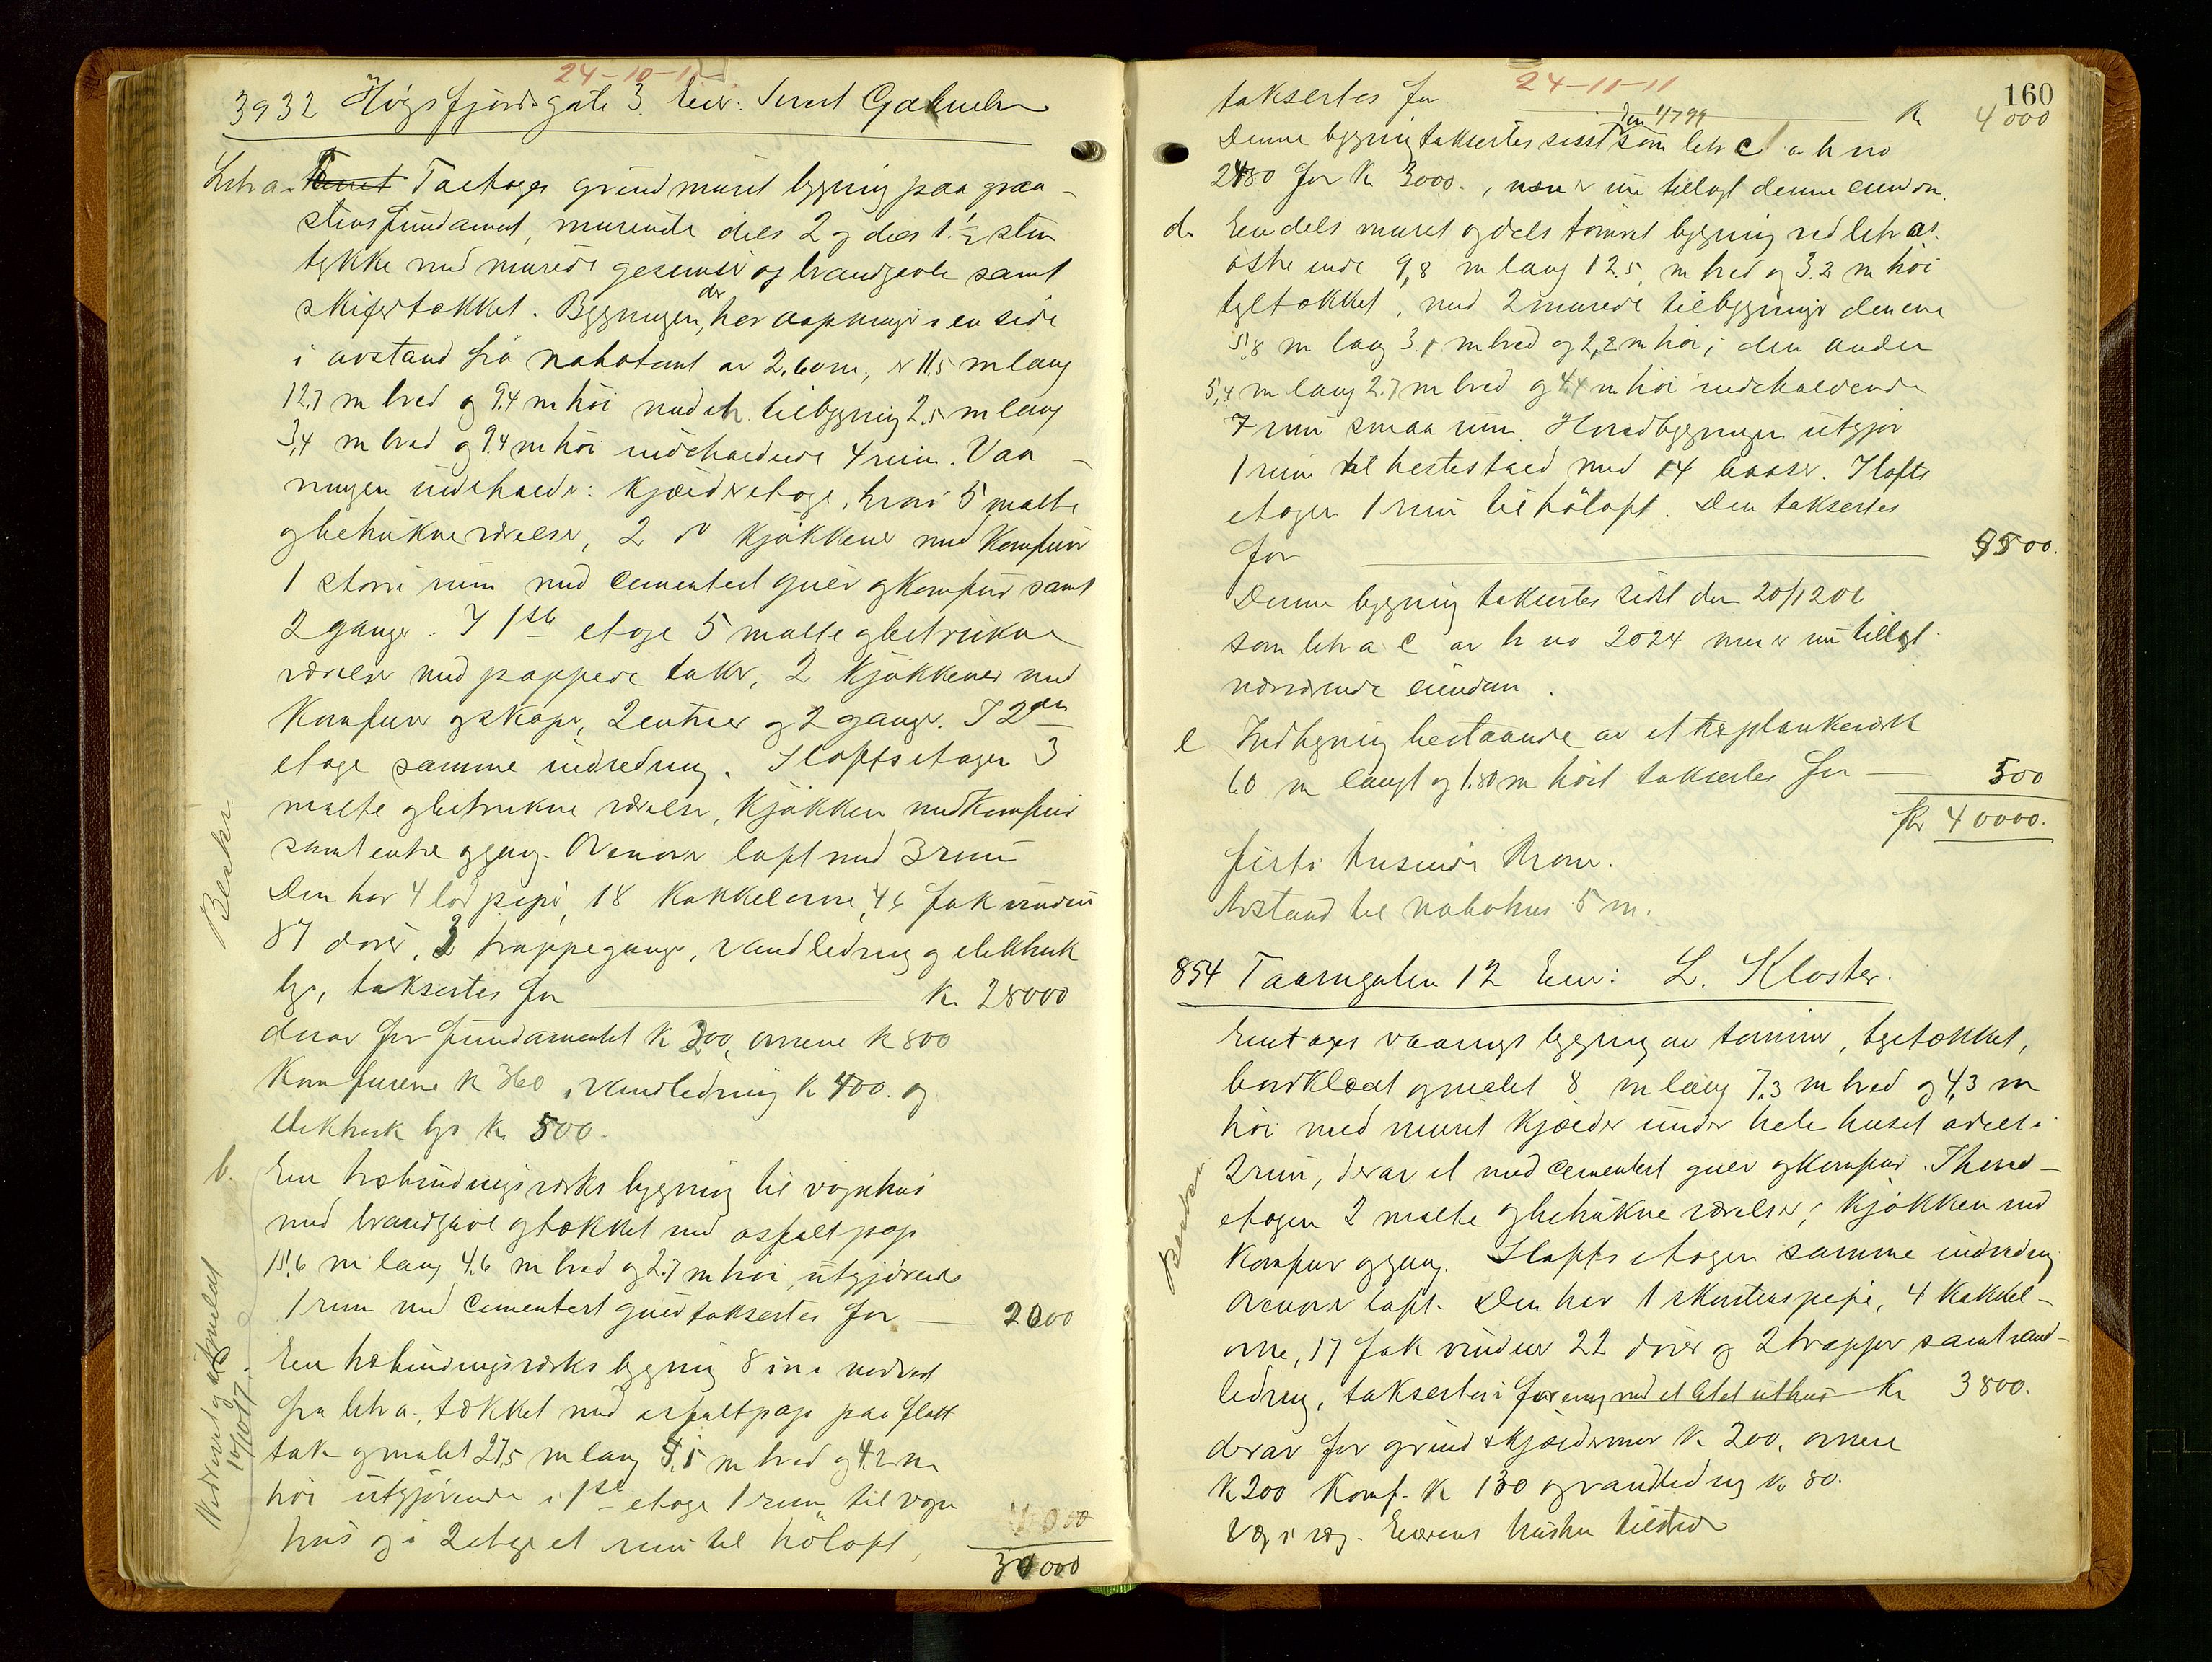 24-10-11
3932 Høgsfjordsgate 3. Eier:
Litr a. Toetages grundmuret bygning paa graa-
stensfundament, murende dels 2 og dels 1 1/2 sten
tykke med murede gesimser og brandgavle samt
skifertækket. Bygningen, der har aapninger i en side
i avstand fra nabotomt av 2.60 m, er 11,5 m lang
12,7 m bred og 9,4 m høi med en tilbygning 2,5 m lang
3,4 m bred og 9,4 m høi indeholdende 4 rum. Vaa-
ningen indeholder: Kjælderetage, hvori 5 malte
og betrukne værelser, 2 do kjøkkener med komfur
1 større rum med cementert gulv og komfur samt
2 ganger. I 1ste etage 5 malte og betrukne
værelser med pappede taker, 2 kjøkkener med
komfurer og skaper, 2 entreer og 2 ganger. I 2den
etage samme indredning. I loftsetagen 3
malte og betrukne værelser, kjøkken med komfur
samt entre og gang. Ovenover loft med 3 rum
Den har 4 lod piper, 18 kakkelovne, 46 fak vinduer
87 dører, 3 trappeganger, vandledning og elektrisk
lys, taksertes for Kr. 28000
derav for fundamentet kr 200, ovnene kr 800
Komfurene kr 360, vandledning kr 400. og
elektrisk lys kr. 500.
b. En træbindingsverks bygning til vognhus
med brandgavl og tækket med asfaltpap
15,6 m lang 4,6 m bred og 2,7 m høi, utgjørende
1 rum med cementert gulv taksertes for 2000
En træbindingsverks bygning 8 m i nordvest
fra litr a., tækket med asfaltpap paa flatt
tak og malet 27,5 m lang 5,5 m bred og 4,2 m
høi utgjørende i 1ste etage 1 rum til vogn
hus og i 2 etage et rum til høloft,
30000
Beskr.
10/10 17.
24-11-11
160
taksertes for Kr 4000
Denne bygning taksertes sidst som litr c av hr no
2480 for Kr 3000., men er nu tillagt denne eiendom.
d. En dels muret og dels tømret bygning ved litr as.
østre ende 9,8 m lang 12,5 m bred og 3.2 m høi
tegltækket, med 2 murede tilbygninger den ene
5,8 m lang 3.1 m bred og 2,2 m høi, den anden
5,4 m lang 2.7 m bred og 4,4 m høi indeholdende
7 rum smaa rum. Hovedbygningen utgjør
1 rum til hestestald med 14 baaser. I lofts
etagen 1 rum til høloft. Den taksertes
for 5500.
Denne bygning taksertes sidst den 20/12 06
som litr a c av hr no 2024 men er nu tillagt
nærværende eiendom.
e Indhegning bestaaende av et træplankeverk
60 m langt og 1.80 m høit taksertes for 500
Kr 40000.
firti tusinde Kroner.
Avstand til nabohus 5 m.
854 Taarngaten 12 Eier: L. Kloster.
Enetages vaanings bygning av tømmer, tegltækket,
bordklædt og malet 8 m lang 7,3 m bred og 4,3 m
høi med muret kjælder under hele huset avdelt i
2 rum, derav et med cementert gulv og komfur. I hoved-
etagen 2 malte og betrukne værelser, kjøkken med
komfur og gang. I lofts etagen samme indredning
Ovenover loft. Den har 1 skorstenspipe, 4 kakkel-
ovne, 17 fak vinduer 22 dører og 2 trapper samt vand-
ledning, taksertes i forening med et litet uthus Kr 3800.
derav for grund & kjældermur kr 200, ovnene
kr 200 Komf. kr 130 og vandledning kr 80.
Væg i væg. Eierens hustru tilstede
Beskr.